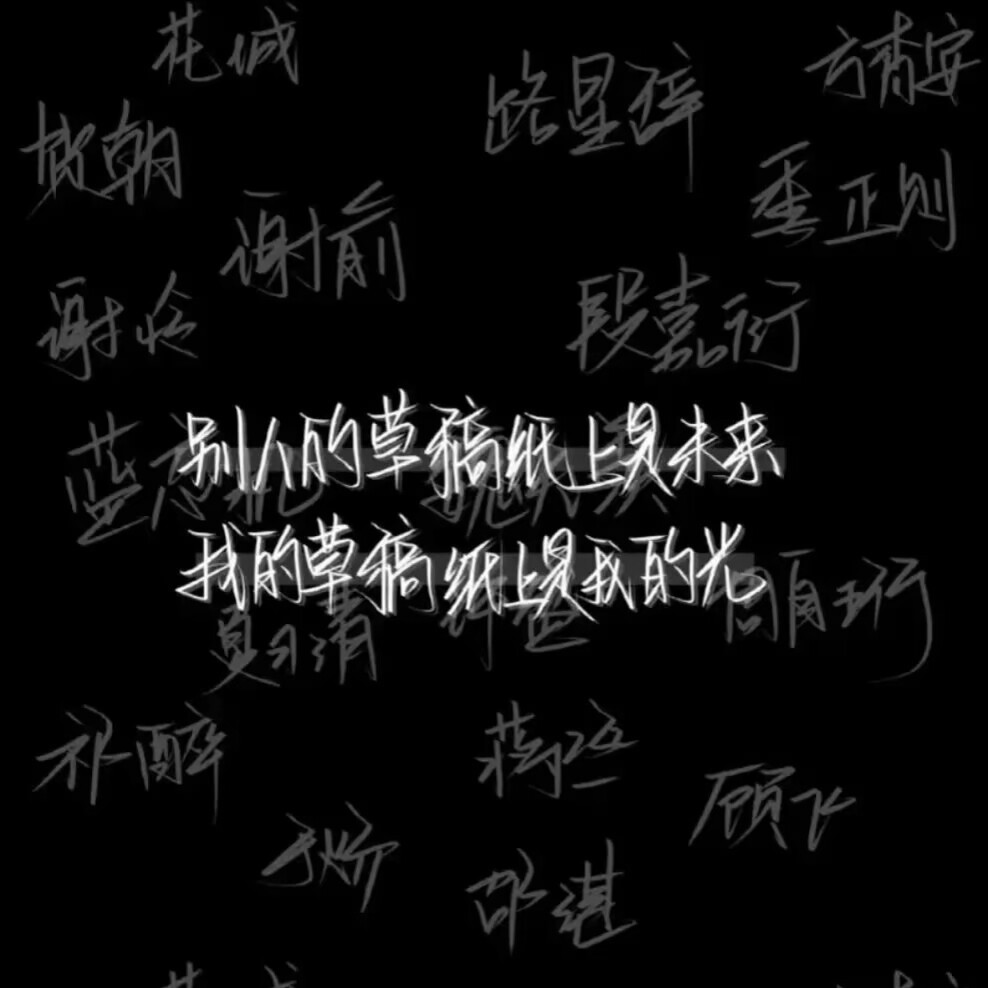 花城
路星辞
方肯安
贺朝
季正则
谢前
谢怜
段嘉衍
别人的草稿纸上是未来
蓝忘机
我的草稿纸上是我的光
夏习清
周自珩
蒋丞
顾飞
邵湛